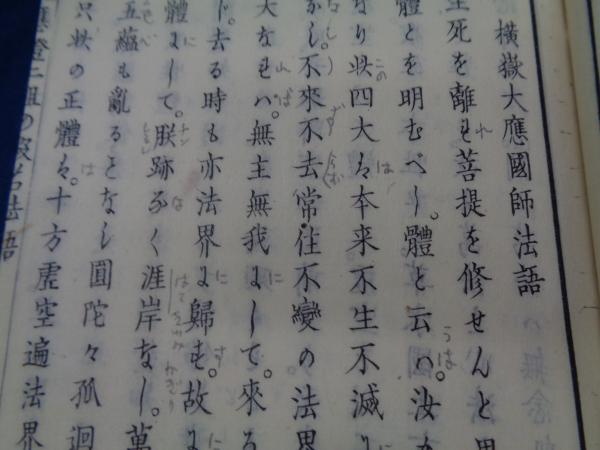 横嶽大應國師法語
生死を離れ菩提を修せんと
體とを明むべし。體と云は。汝
なり此四大は本来不生不滅に
なし。不來不去常住不變の法界
大なれば。無主無我にして。來る
じ。去る時も亦法界に歸す。故に
體にして。朕跡なく涯岸なし。萬
五蘊も亂るゝとなし圓陀々孤迥
只此の正體は。十方虚空遍法界
法語